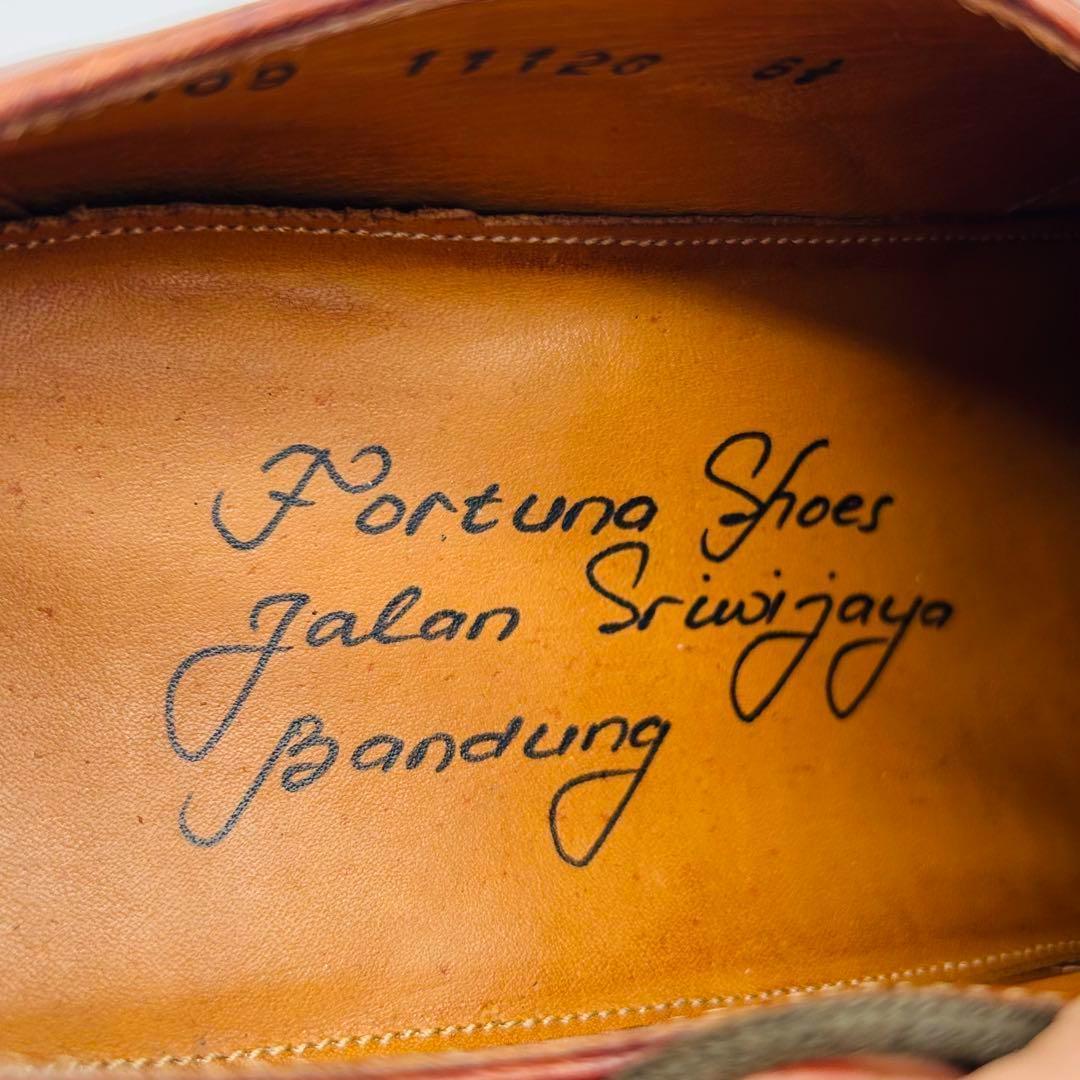 11120 6½
Fortuna Shoes
Jalan Sriwijaya
Bandung